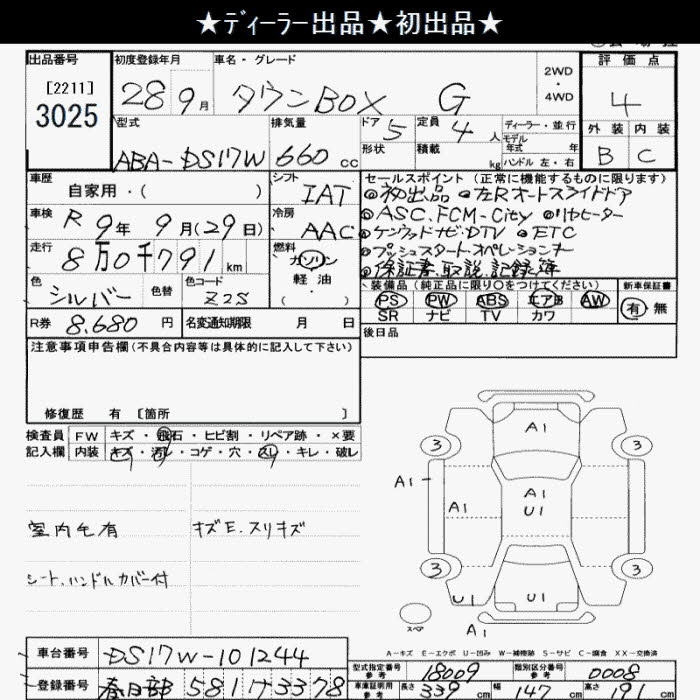 ★ディーラー出品★初出品★
出品番号 初度登録年月 車名・グレード 2WD・4WD 評価点
[2211]
3025
28 9月 タウンBOX G 4
型式 排気量 ドア 5 定員 4人 ディーラー・並行 外装 内装
ABA-DS17W 660cc 形状 積載 kg モデル年式 年 ハンドル 左・右 B C
車歴 自家用・( ) シフト IAT
セールスポイント (正常に機能するものに限ります)
◎初出品 ◎左Rオートスライドドア
車検 R9年9月(29日) 冷房 AAC
◎ASC.FCM-City ◎リヤヒーター
◎ケンウッドナビ・DTV ◎ETC
走行 8万0千791km 燃料 ガソリン・軽油・( )
◎プッシュスタート・オペレーションキー
◎保証書.取説.記録簿
色 シルバー 色替 色コード Z2S
装備品(純正品に限り○をつけてください) 新車保証書
PS PW ABS エアB AW 有 無
SR ナビ TV カワ
R券 8.680円 名変通知期限 月 日
後日品
注意事項申告欄(不具合内容等は具体的に記入して下さい)
修復歴 有 〔箇所 〕
検査員記入欄 FW キズ・飛石・ヒビ割・リペア跡・×要
内装 キズ・汚レ・コゲ・穴・スレ・キレ・破レ
室内毛有 キズE.スリキズ
シート.ハンドルカバー付
A1
3 3
A1 A1 A1
U1
3 3
U1 U1
スペア A1
A-キズ E-エクボ U-凹み W-補修跡 S-サビ C-腐食 XX-交換済
車台番号 DS17W-101244
型式指定番号 参考 18009 類別区分番号 参考 0008
登録番号 春日部 581 ワ 3378
車車証明用 参考 長さ 339cm 幅 147cm 高さ 191cm